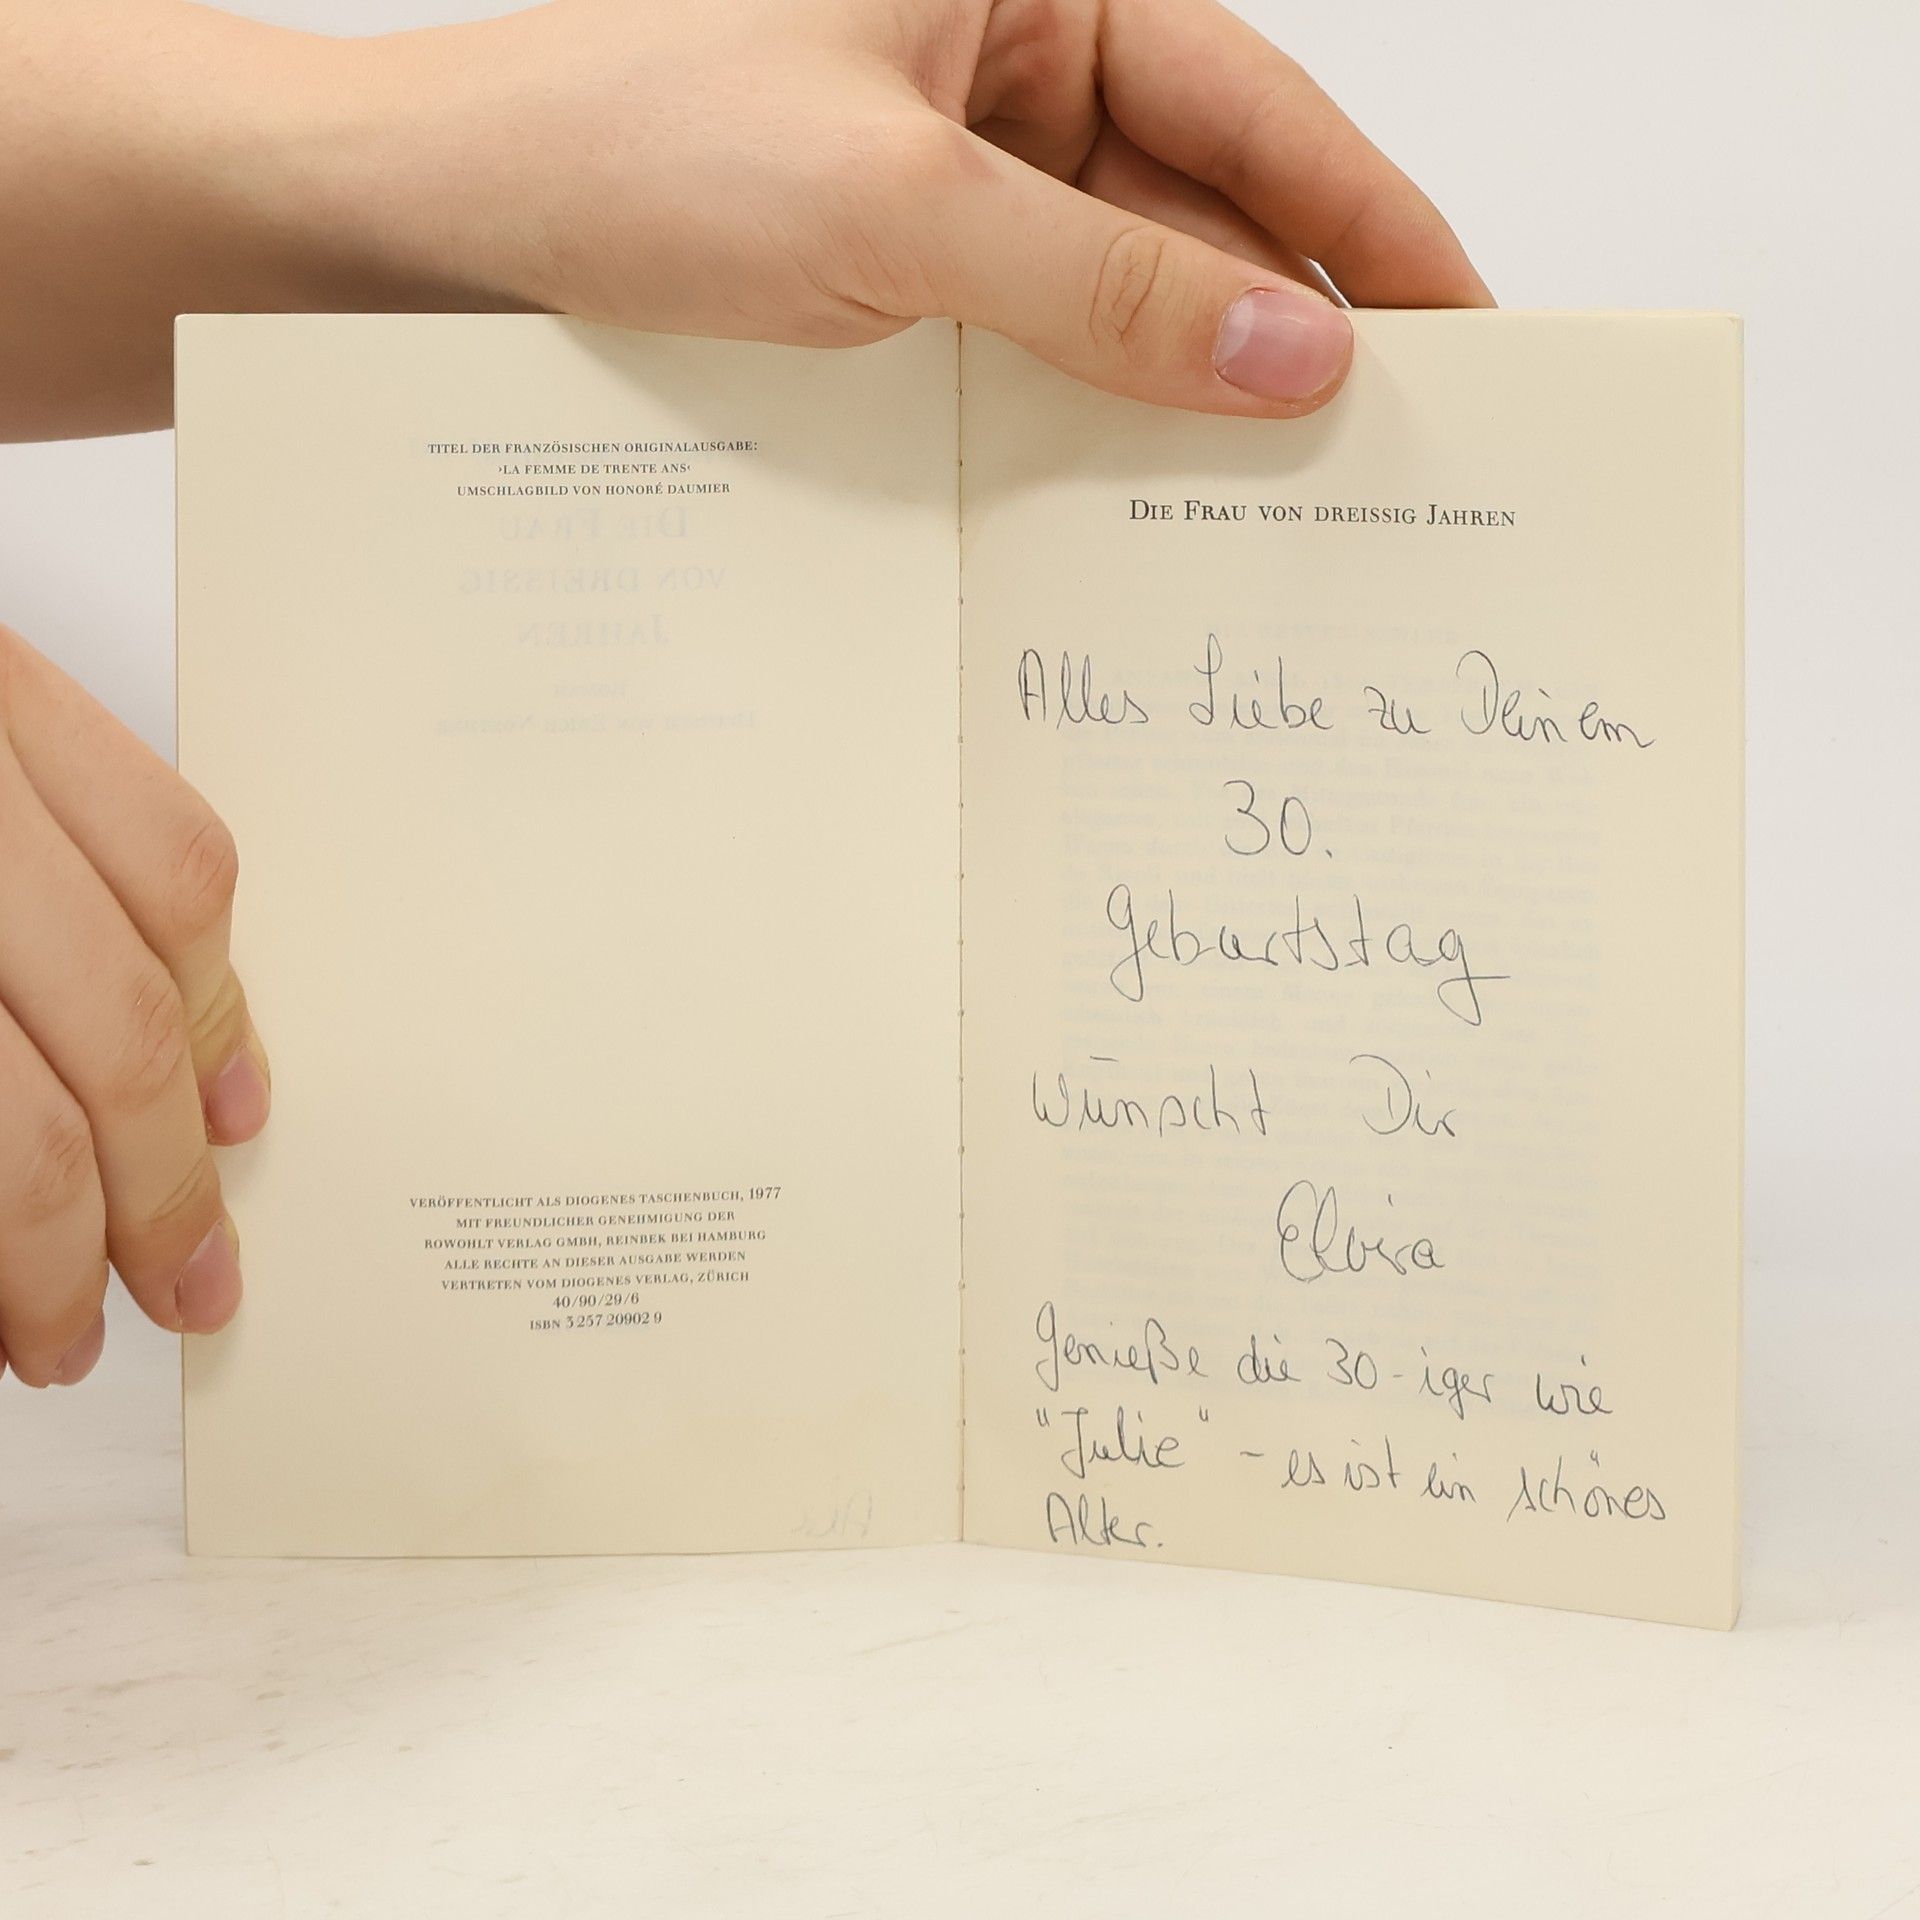 TITEL DER FRANZÖSISCHEN ORIGINALAUSGABE:
›LA FEMME DE TRENTE ANS‹
UMSCHLAGBILD VON HONORÉ DAUMIER
DIE FRAU
VON DREISSIG
JAHREN
ROMAN
VERÖFFENTLICHT ALS DIOGENES TASCHENBUCH, 1977
MIT FREUNDLICHER GENEHMIGUNG DER
ROWOHLT VERLAG GMBH, REINBEK BEI HAMBURG
ALLE RECHTE AN DIESER AUSGABE WERDEN
VERTRETEN VOM DIOGENES VERLAG, ZÜRICH
40/90/29/6
ISBN 3 257 20902 9
DIE FRAU VON DREISSIG JAHREN
Alles Liebe zu Deinem
30.
Geburtstag
wünscht Dir
Elvira
Genieße die 30-iger wie
"Julie" - es ist ein schönes
Alter.